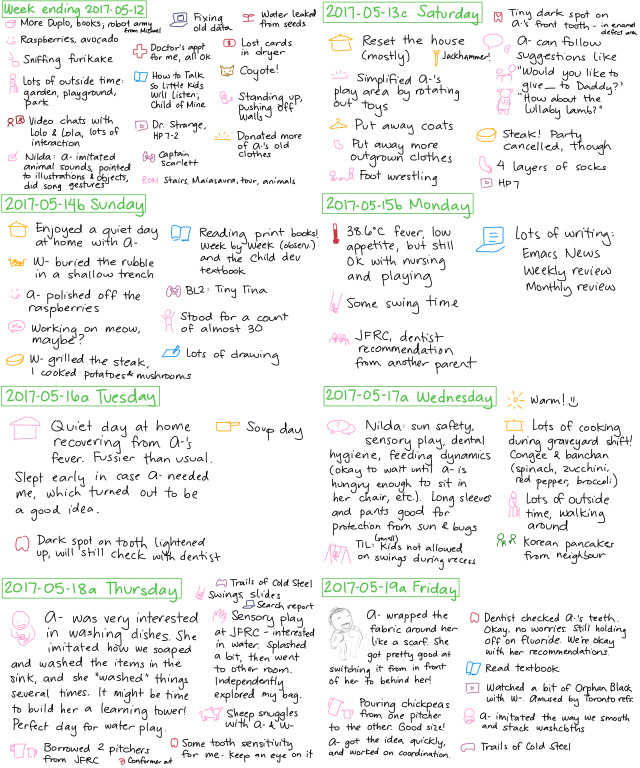 Week ending 2017-05-12
More Duplo, books, robot army from Michael
Raspberries, avocado
Sniffing furikake
Lots of outside time:
garden, playground,
park
Video chats with
Lolo & Lola, lots of
interaction
Nilda: A- imitated
animal sounds, pointed
to illustrations & objects,
did song gestures
Fixing
old data
Doctor's appt
for me, all ok
How to Talk
so Little Kids
Will Listen;
Child of Mine
Dr. Strange,
HP 7-2
Captain
Scarlett
Stairs, Maiasaura, tour, animals
Water leaked
from seeds
Lost cards
in dryer
Coyote!
Standing up,
pushing off
walls
Donated more
of A-'s old
clothes
2017-05-13c Saturday
Reset the house
(mostly)
Jackhammer!
Simplified A-'s
play area by rotating
out toys
Put away coats
Put away more
outgrown clothes
Foot wrestling
Tiny dark spot on
A-'s front tooth - in enamel
defect area
A- can follow
suggestions like
"Would you like to
give __ to Daddy?"
"How about the
lullaby lamb?"
Steak! Party
cancelled, though
4 layers of socks
HP7
2017-05-14b Sunday
Enjoyed a quiet day
at home with A-
W- buried the rubble
in a shallow trench
A- polished off the
raspberries
Me
Working on meow,
maybe?
W- grilled the steak,
I cooked potatoes & mushrooms
Reading print books!
Week by Week (observ.)
and the Child dev
textbook
BL2: Tiny Tina
Stood for a count
of almost 30
Lots of drawing
2017-05-15b Monday
38.6°C fever, low
appetite, but still
OK with nursing
and playing
Some swing time
JFRC, dentist
recommendation
from another parent
Lots of writing:
Emacs News
Weekly review
Monthly review
2017-05-16a Tuesday
Quiet day at home
recovering from A-'s
fever. Fussier than usual.
Slept early in case A- needed
me, which turned out to be
a good idea.
Dark spot on tooth lightened
up, will still check with dentist
Soup day
2017-05-17a Wednesday
Nilda: sun safety,
sensory play, dental
hygiene, feeding dynamics
(okay to wait until A- is
hungry enough to sit in
her chair, etc.). Long sleeves
and pants good for
protection from sun & bugs
TIL: (small) Kids not allowed
on swings during recess
Warm! :)
Lots of cooking
during graveyard shift!
Congee & banchan
(spinach, zucchini,
red pepper, broccoli)
Lots of outside
time, walking
around
Korean pancakes
from neighbour
2017-05-18a Thursday
A- was very interested
in washing dishes. She
imitated how we soaped
and washed the items in the
sink, and she "washed" things
several times. It might be time
to build her a learning tower!
Perfect day for water play.
Borrowed 2 pitchers
from JFRC
Trails of Cold Steel
Swings, slides
Search report
Sensory play
at JFRC - interested
in water, splashed
a bit, then went
to other room.
Independently
explored my bag.
Sheep snuggles
with A- & W-
Some tooth sensitivity
for me. Keep an eye on it
Confirmer at
2017-05-19a Friday
A- wrapped the
fabric around her
like a scarf. She
got pretty good at
switching it from in front
of her to behind her!
Pouring chickpeas
from one pitcher
to the other. Good size!
A- got the idea quickly,
and worked on coordination.
Dentist checked A-'s teeth.
Okay, no worries. Still holding
off on fluoride. We're okay
with her recommendations.
Read textbook
Watched a bit of Orphan Black
with W-. Amused by Toronto refs.
A- imitated the way we smooth
and stack washcloths
Trails of Cold Steel